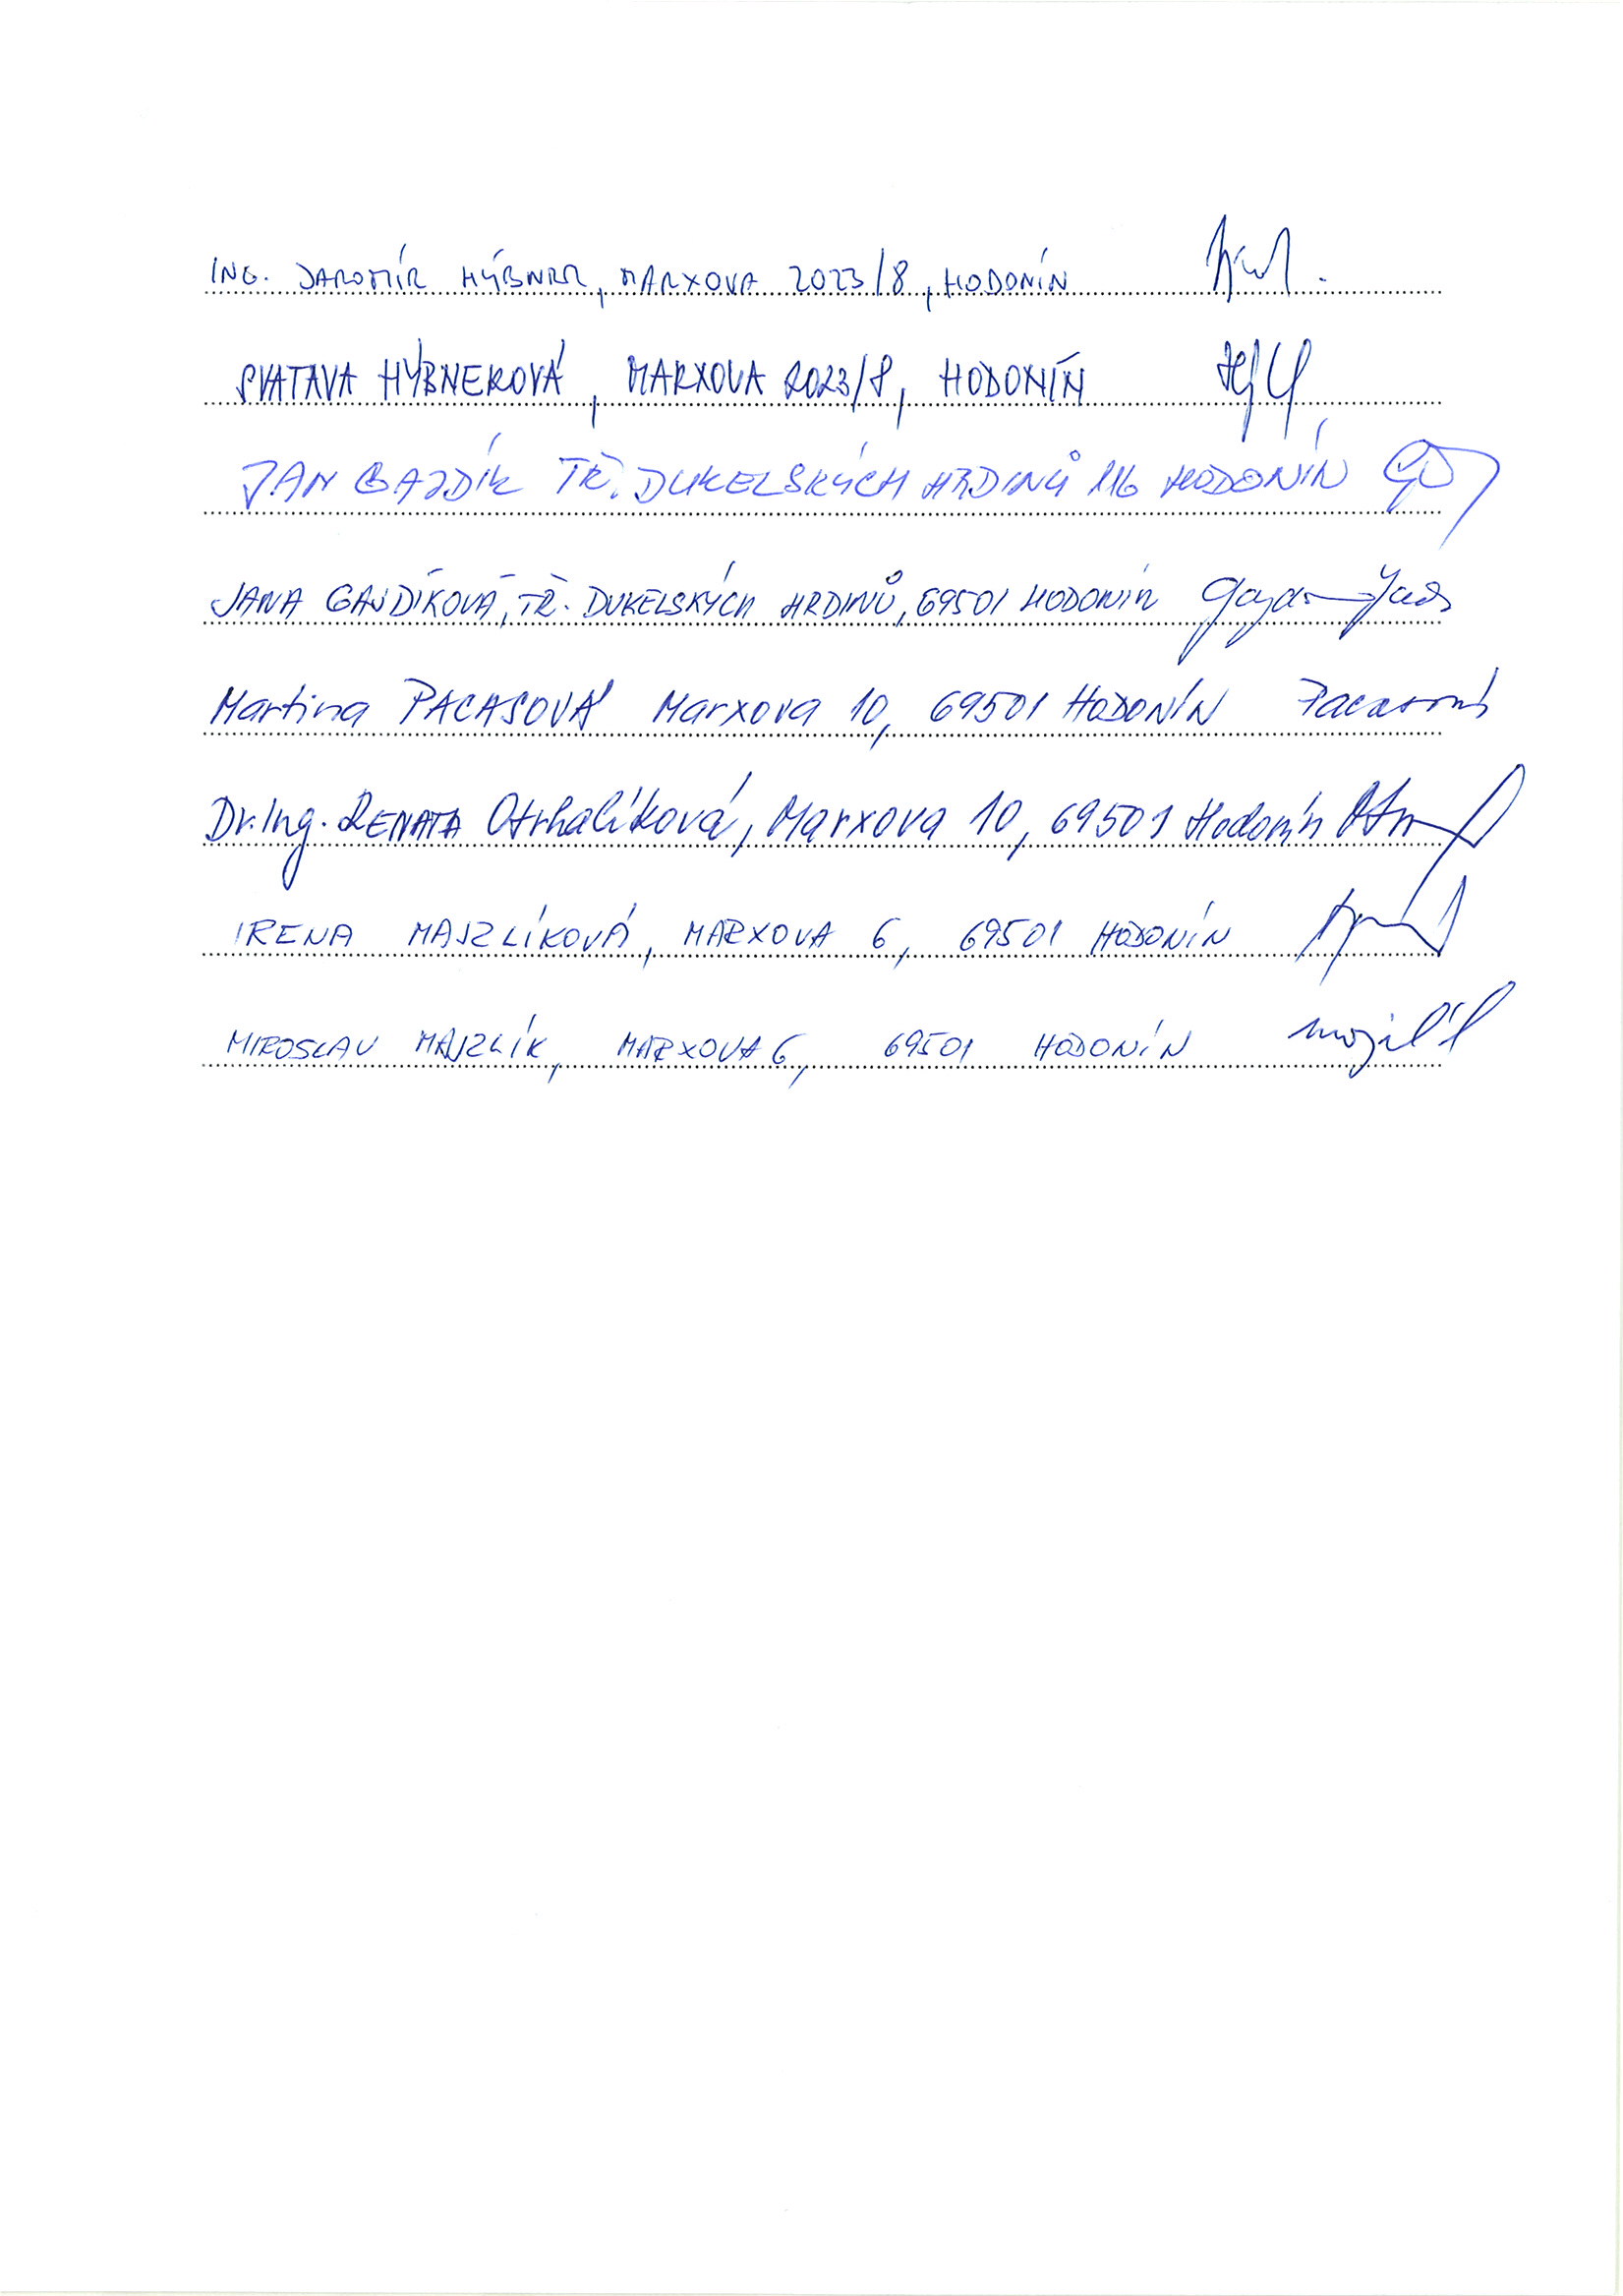 ING. JAROMÍR HÝBNER, MARXOVA 2023/8, HODONÍN
SVATAVA HÝBNEROVÁ, MARXOVA 2023/8, HODONÍN
JAN GAJDÍK TŘ. DUKELSKÝCH HRDINŮ 116 HODONÍN
JANA GAJDÍKOVÁ, TŘ. DUKELSKÝCH HRDINŮ, 69501 HODONÍN
Martina PACASOVÁ Marxova 10, 69501 HODONÍN Pacasová
Dr. Ing. RENATA Otrhalíková, Marxova 10, 69501 Hodonín
IRENA MAJZLÍKOVÁ, MARXOVA 6, 69501 HODONÍN
MIROSLAV MAJZLÍK, MARXOVA 6, 69501 HODONÍN